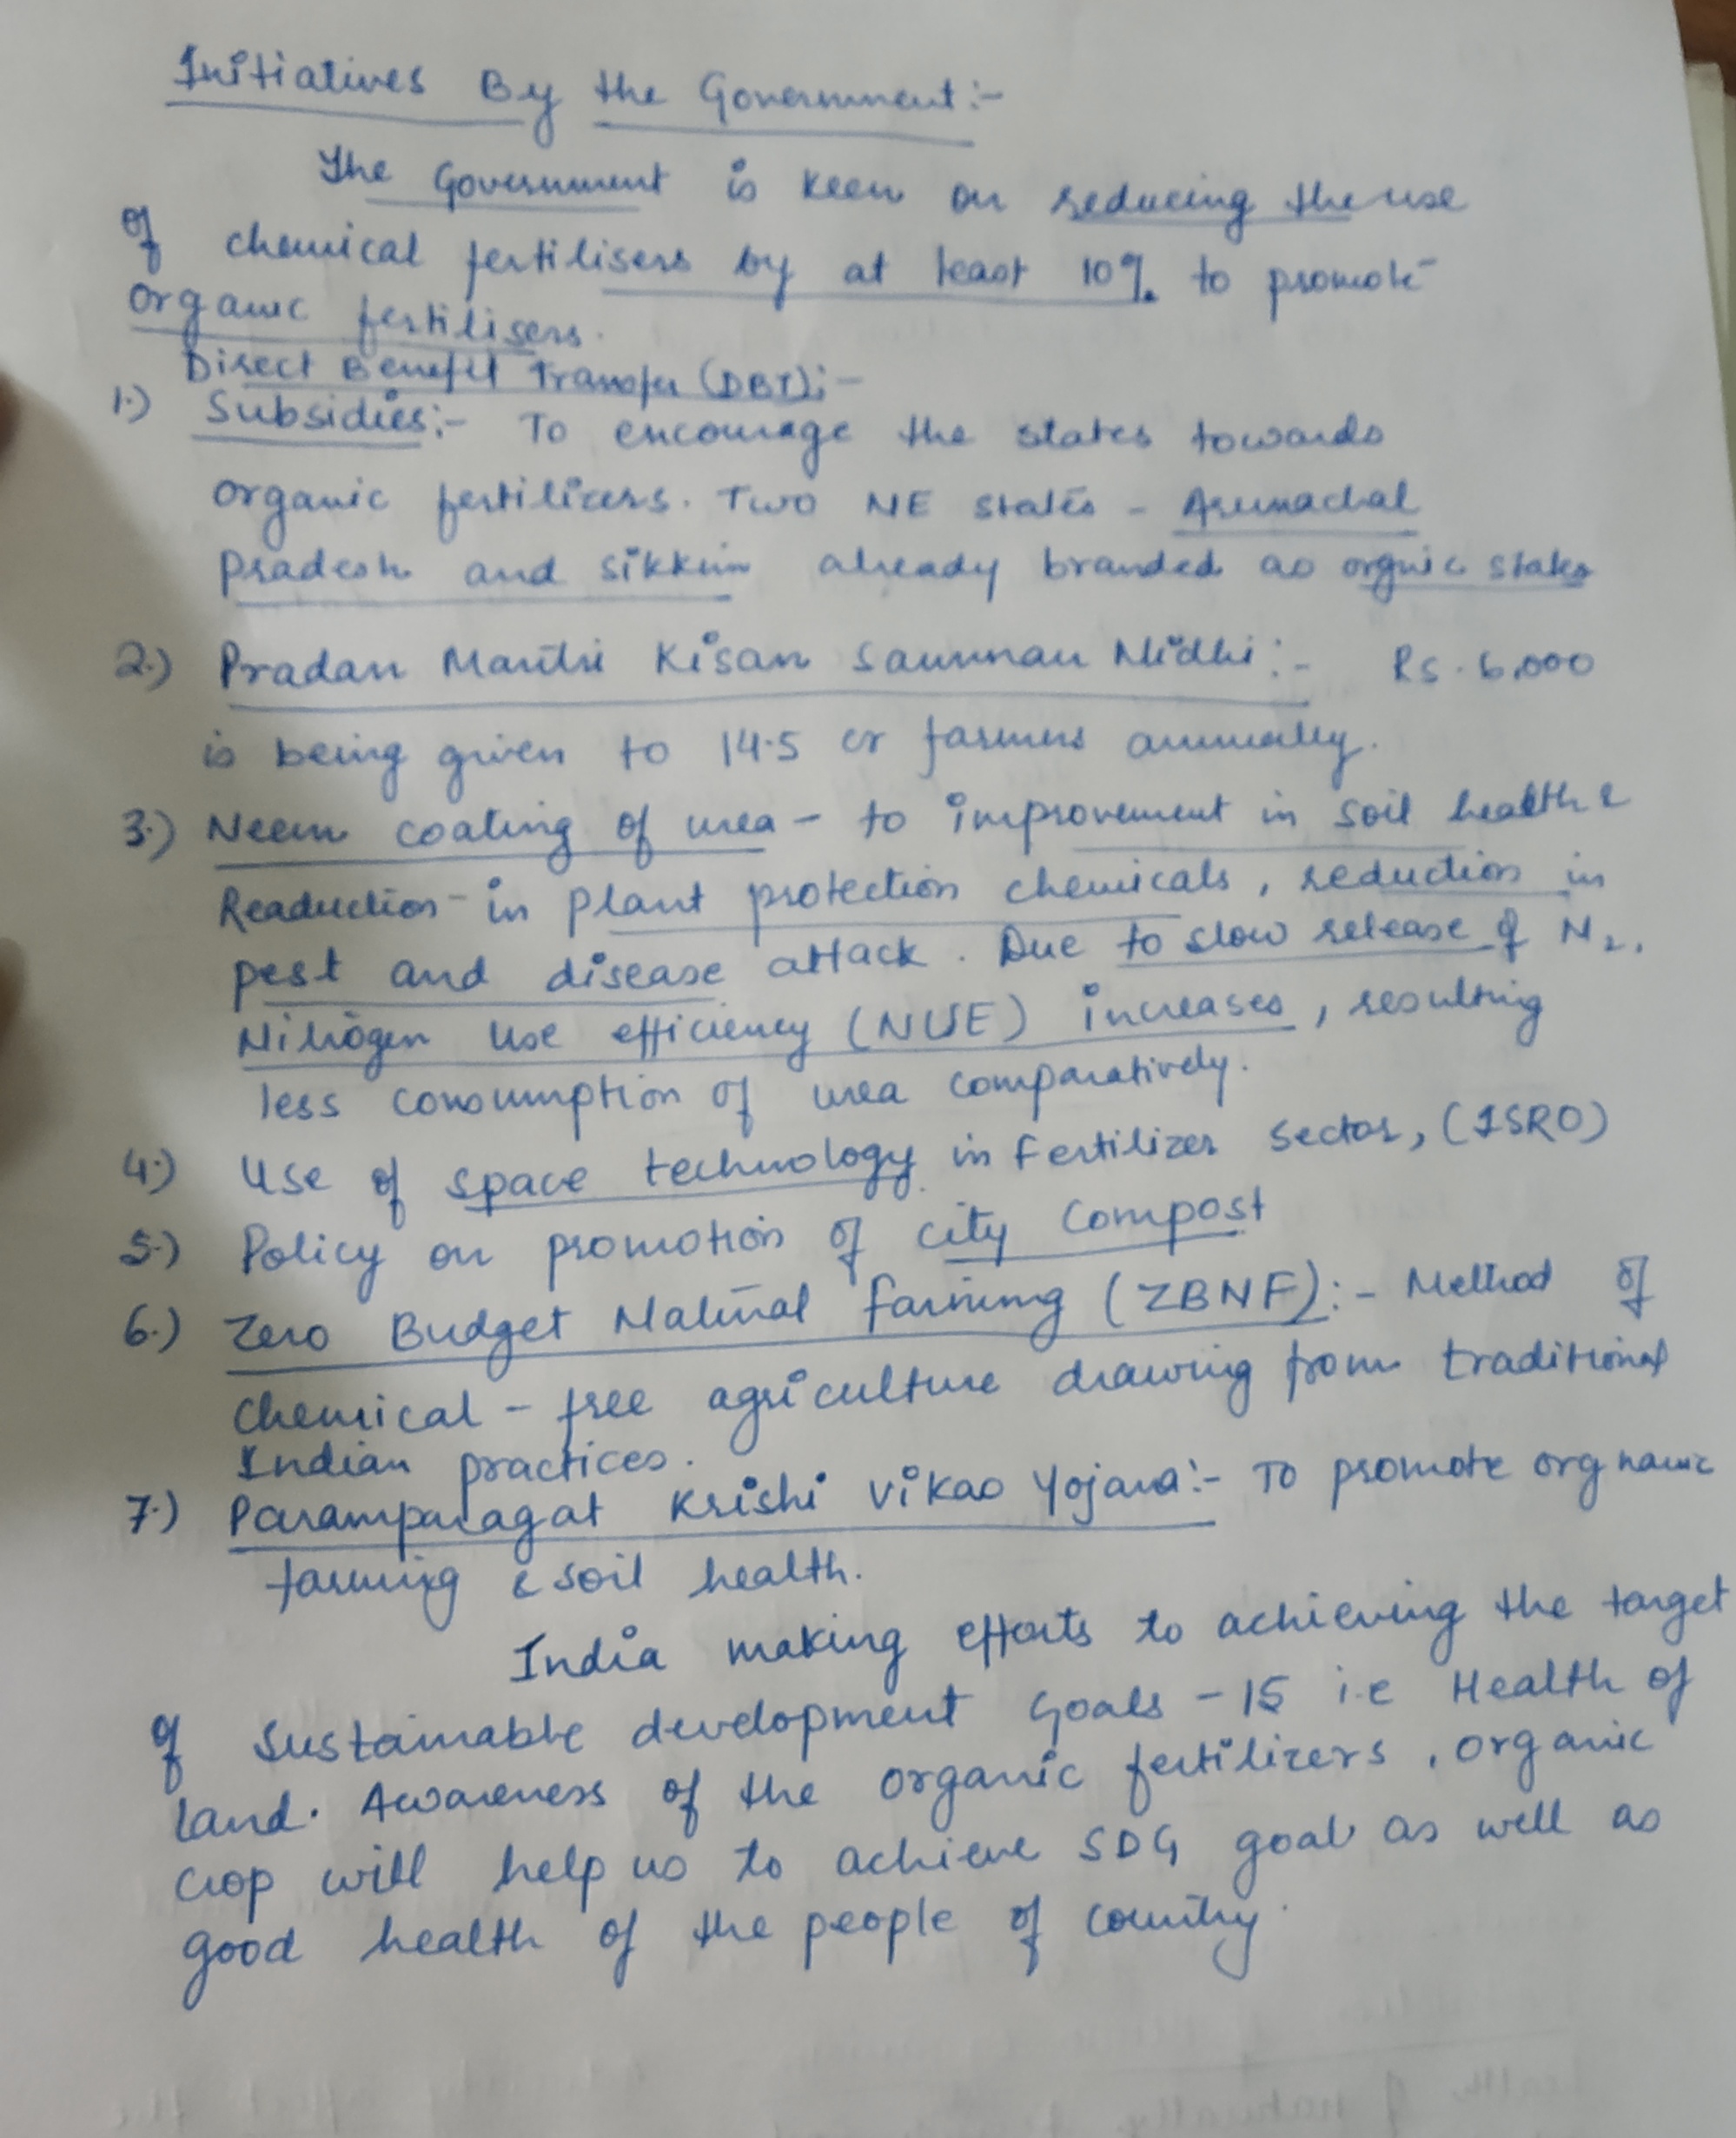 Initiatives By the Government:-
The Government is keen on reducing the use
of chemical fertilisers by at least 10% to promote
organic fertilisers.
Direct Benefit Transfer (DBT):-
1.) Subsidies:- To encourage the states towards
organic fertilizers. Two NE states - Arunachal
Pradesh and sikkim already branded as orgnic states
2.) Pradan Mantri Kisan Samman Nidhi:- Rs. 6,000
is being given to 14.5 cr farmers annually.
3.) Neem coating of urea - to improvement in soil health &
Readuction in plant protection chemicals, reduction in
pest and disease attack. Due to slow release of N2,
Nitrogen use efficiency (NUE) increases, resulting
less consumption of urea comparatively.
4.) Use of space technology in fertilizer sector, (ISRO)
5.) Policy on promotion of city compost
6.) Zero Budget Natural farming (ZBNF):- Method of
chemical-free agriculture drawing from traditional
Indian practices.
7.) Paramparagat Krishi Vikas Yojana:- To promote orgnanic
farming & soil health.
India making efforts to achieving the target
of sustainable development Goals - 15 i.e Health of
land. Awareness of the organic fertilizers, organic
crop will help us to achieve SDG goal as well as
good health of the people of country.